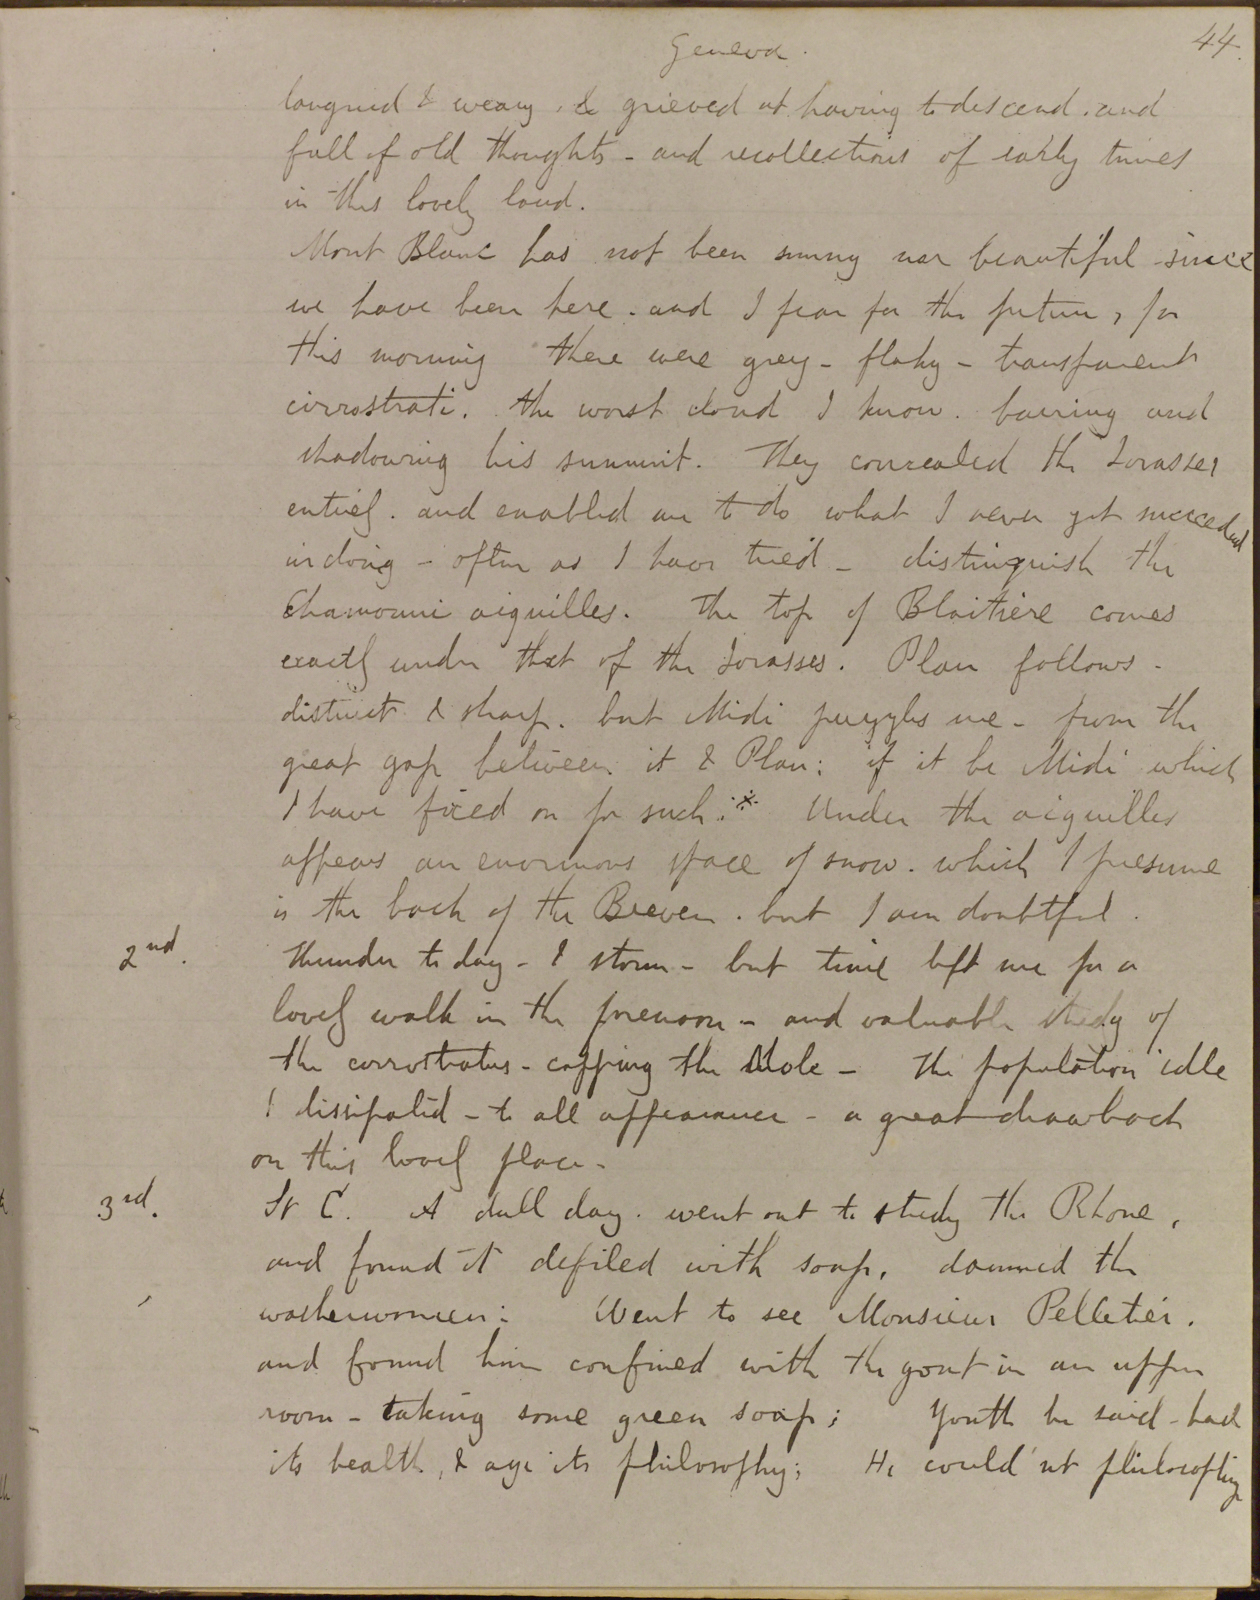 Geneva.
44.
languid & weary, & grieved at having to descend. and
full of old thoughts - and recollections of early times
in this lovely land.
Mont Blanc has not been sunny nor beautiful since
we have been here. and I fear for the future, for
this morning there were grey - flaky - transparent
cirrostrati. the worst cloud I know. barring and
shadowing his summit. They concealed the Jorasses
entirely. and enabled me to do what I never yet succeeded
in doing - often as I have tried - distinguish the
Chamouni aiguilles. The top of Blaitiere comes
exactly under that of the Jorasses. Plan follows -
distinct & sharp. but Midi puzzles me - from the
great gap between it & Plan: if it be Midi which
I have fixed on for such.* Under the aiguilles
appears an enormous space of snow. which I presume
is the back of the Breven. but I am doubtful.
2nd. Thunder to day - & storm - but time left me for a
lovely walk in the forenoon - and valuable study of
the cirrostratus - capping the Mole - the population idle
& dissipated - to all appearance - a great drawback
on this lovely place -
3rd. St C. A dull day. went out to study the Rhone,
and found it defiled with soap, damned the
washerwomen: Went to see Monsieur Pelletier.
and found him confined with the gout in an upper
room - taking some green soap; Youth he said - had
its health, & age its philosophy; He could'nt philosophize